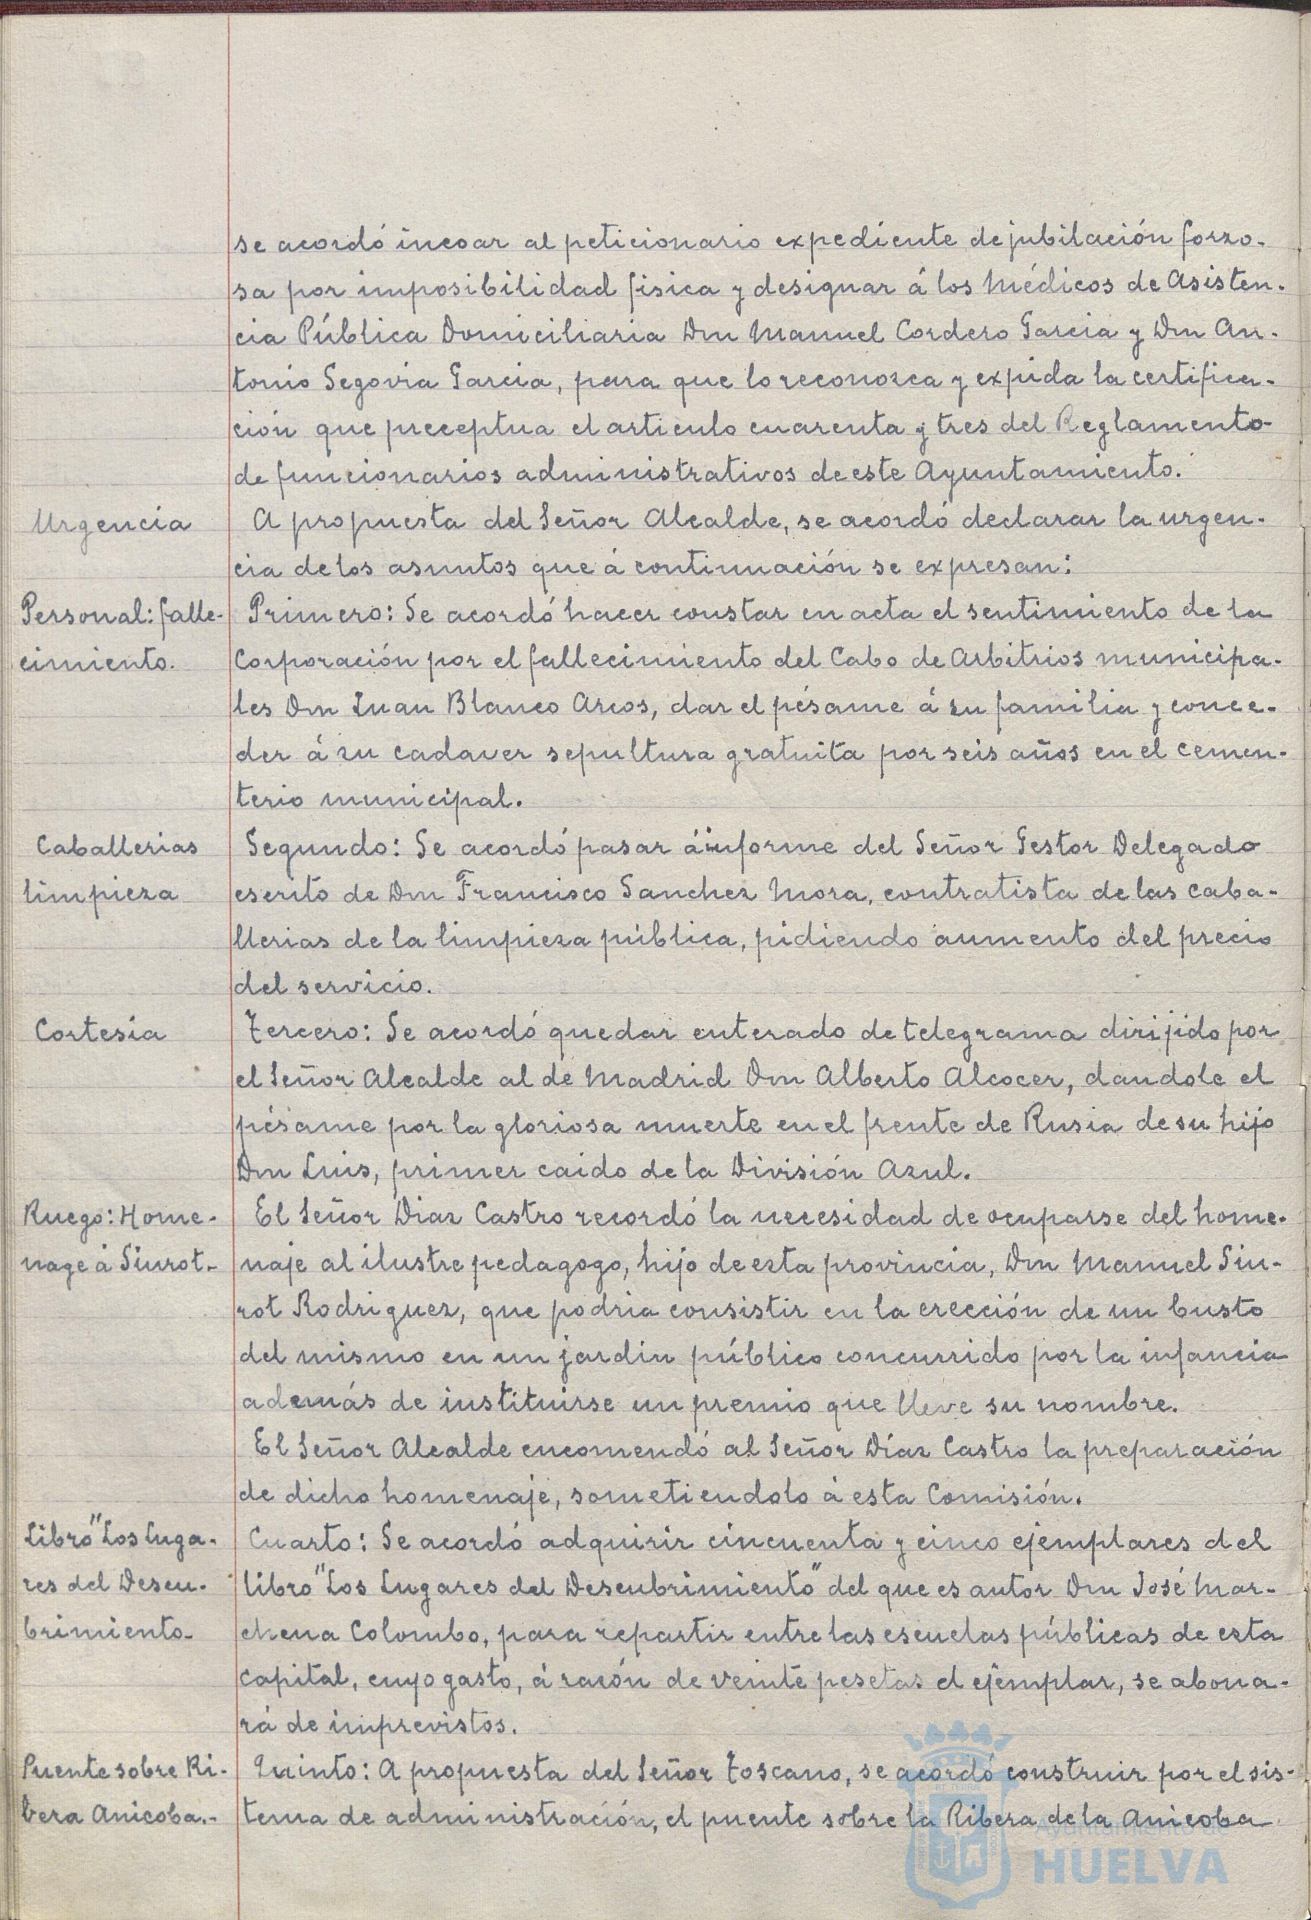 se acordó incoar al peticionario expediente de jubilación forzo-
sa por imposibilidad fisica y designar á los Médicos de Asisten-
cia Pública Domiciliaria Don Manuel Cordero Garcia y Don An-
tonio Segovia Garcia, para que lo reconozca y expida la certifica-
ción que preceptua el articulo cuarenta y tres del Reglamento
de funcionarios administrativos de este Ayuntamiento.
Urgencia
A propuesta del Señor Alcalde, se acordó declarar la urgen-
cia de los asuntos que á continuación se expresan:
Personal: falle-
cimiento.
Primero: Se acordó hacer constar en acta el sentimiento de la
Corporación por el fallecimiento del Cabo de Arbitrios municipa-
les Don Juan Blanco Arcos, dar el pésame á su familia y conce-
der á su cadaver sepultura gratuita por seis años en el cemen-
terio municipal.
Caballerias
limpieza
Segundo: Se acordó pasar á informe del Señor Gestor Delegado
escrito de Don Francisco Sanchez Mora, contratista de las caba-
llerias de la limpieza pública, pidiendo aumento del precio
del servicio.
Cortesía
Tercero: Se acordó quedar enterado de telegrama dirijido por
el Señor Alcalde al de Madrid Don Alberto Alcocer, dandole el
pésame por la gloriosa muerte en el frente de Rusia de su hijo
Don Luis, primer caido de la División Azul.
Ruego: Home-
nage á Siurot.-
El Señor Diaz Castro recordó la necesidad de ocuparse del home-
naje al ilustre pedagogo, hijo de esta provincia, Don Manuel Siu-
rot Rodriguez, que podria consistir en la erección de un busto
del mismo en un jardin público concurrido por la infancia
además de instituirse un premio que lleve su nombre.
El Señor Alcalde encomendó al Señor Díaz Castro la preparación
de dicho homenaje, sometiendolo á esta Comisión.
Libro "Los Luga-
res del Descu-
brimiento-
Cuarto: Se acordó adquirir cincuenta y cinco ejemplares del
libro "Los Lugares del Descubrimiento" del que es autor Don José Mar-
chena Colombo, para repartir entre las escuelas públicas de esta
capital, cuyo gasto, á razón de veinte pesetas el ejemplar, se abona-
rá de imprevistos.
Puente sobre Ri-
bera Anicoba.-
Quinto: A propuesta del Señor Toscano, se acordó construir por el sis-
tema de administración, el puente sobre la Ribera de la Anicoba
Ayuntamiento de
HUELVA